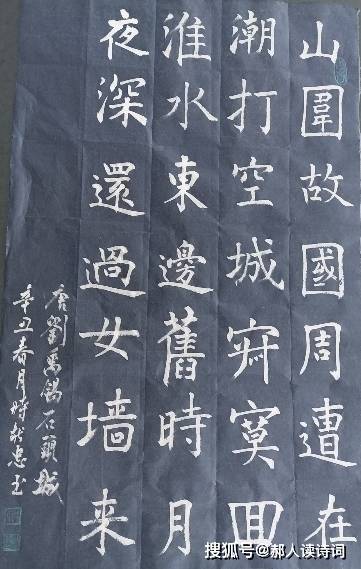 山圍故國周遭在
潮打空城寂寞回
淮水東邊舊時月
夜深還過女墙来
唐劉禹錫石頭城
辛丑春月時
搜狐号@郝人读诗词